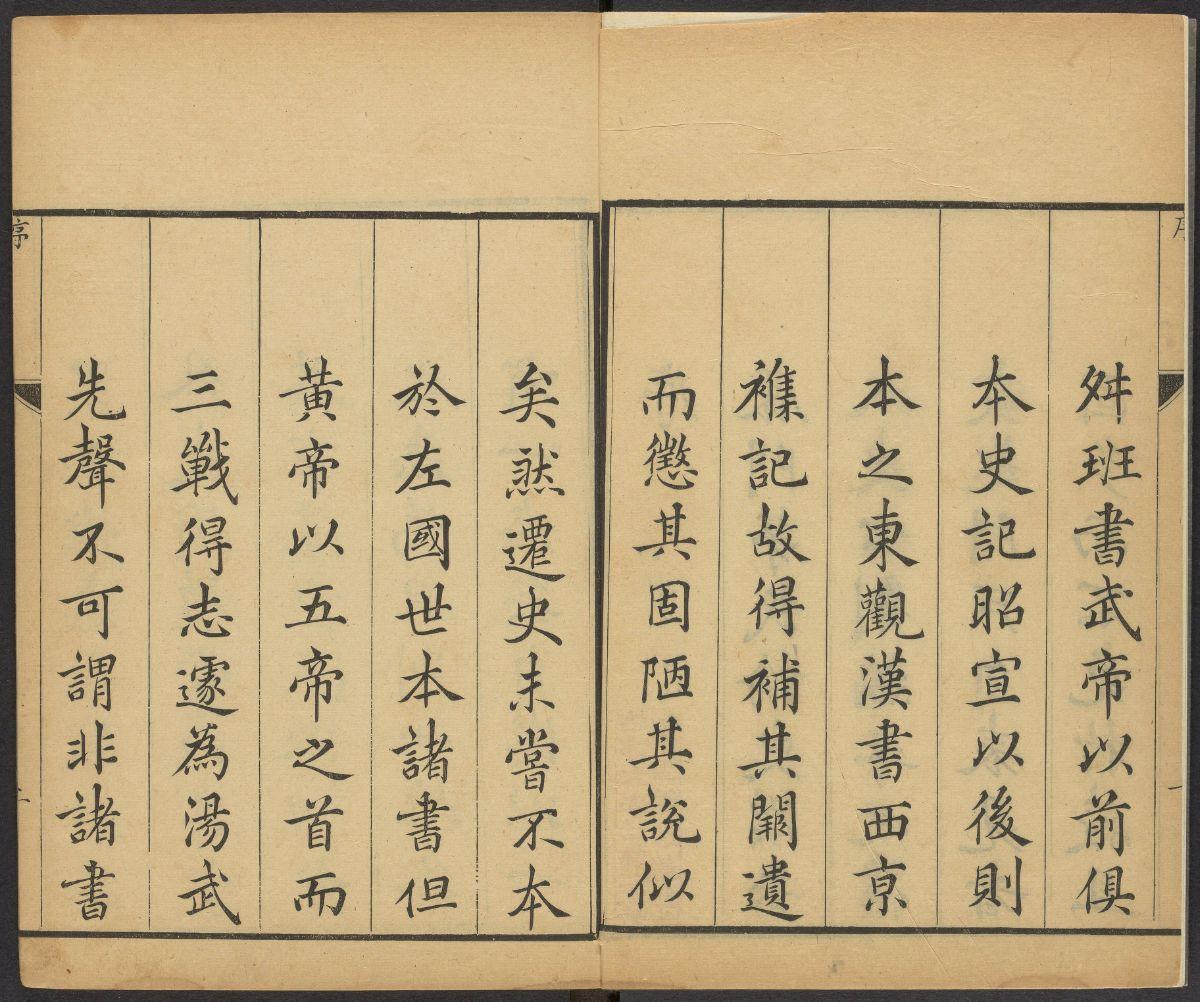 舛班書武帝以前俱
本史記昭宣以後則
本之東觀漢書西亰
襍記故得補其闕遺
而懲其固陋其說似
矣然遷史未嘗不本
於左國世本諸書但
黃帝以五帝之首而
三戰得志遽為湯武
先聲不可謂非諸書
序